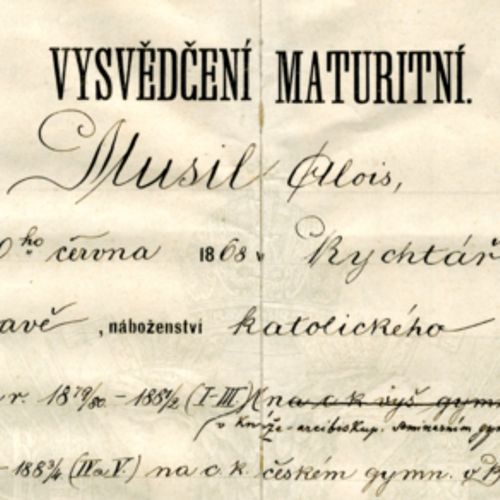 VYSVĚDČENÍ MATURITNÍ.
Musil Alois,
0ho června 1868 v Rychtář
avě, náboženství katolického
r. 1879/80 – 1881/2 (I–III) na c. k. vyš. gymn
v Kníže-arcibiskup. seminárním gy
– 1883/4 (IV a V.) na c. k. českém gymn. v